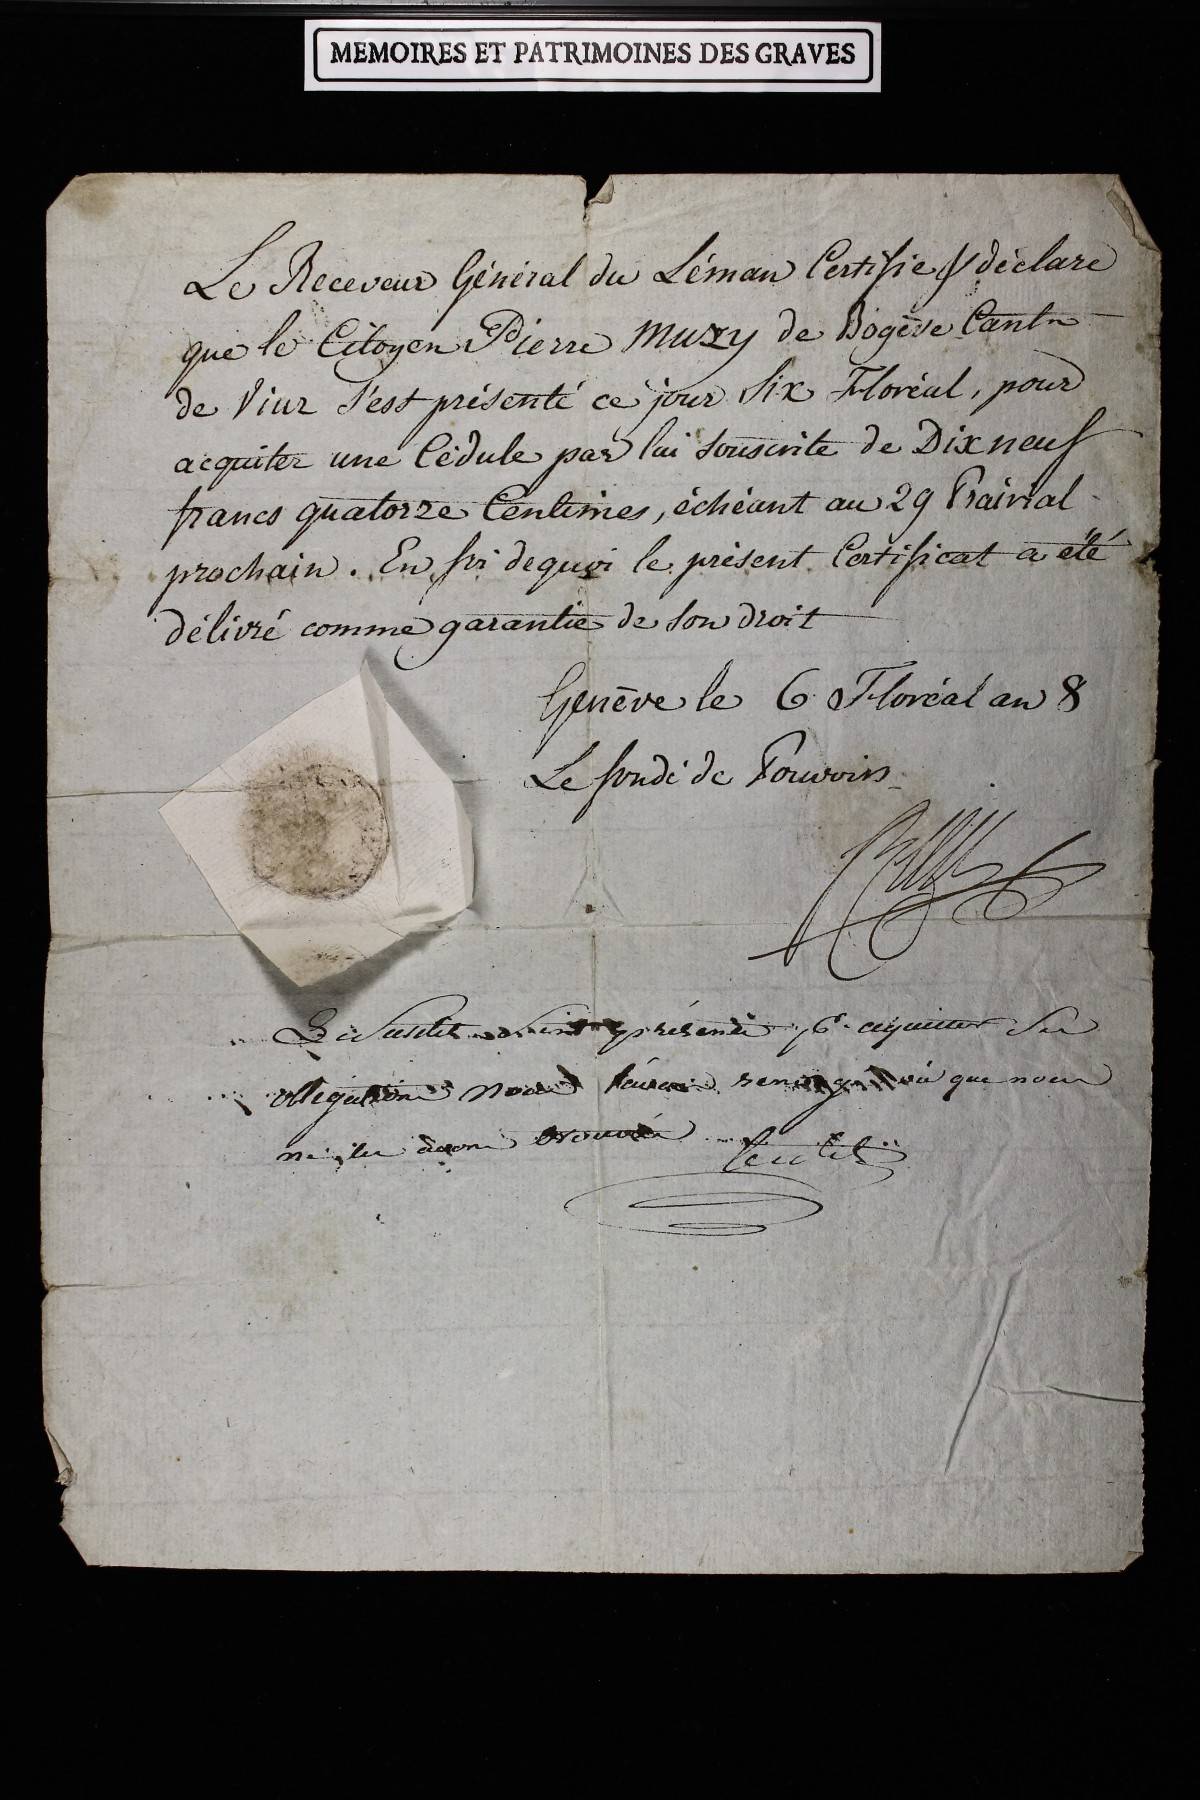 MEMOIRES ET PATRIMOINES DES GRAVES
Le Receveur Général du Léman Certifie & déclare
que le Citoyen Pierre Muxy de Bogève Cantn
de Viur s'est présenté ce jour six Floréal, pour
acquiter une Cédule par lui souscrite de Dix neuf
francs quatorze Centimes, échéant au 29 Prairial
prochain. En foi dequoi le présent Certificat a été
délivré comme garantie de son droit
Genève le 6 Floréal an 8
Le fondé de Pouvoirs
Le Susdit présenté pr. aquitter Ses
obligations nous que nous
ne les avons trouvés